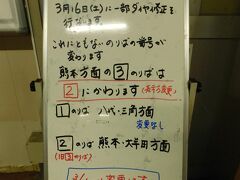 3月16日(土)に一部ダイヤ修正を
行ないます
これにともない のりばの番号が
変わります
熊本方面の3のりばは
2にかわります
1のりば 八代・三角方面
変更なし
2のりば 熊本・大牟田方面
(旧3のりば)